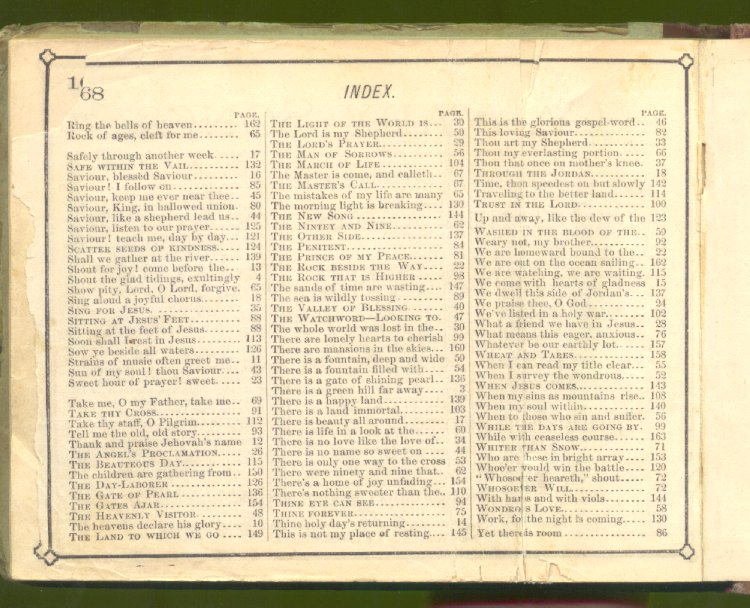 168
INDEX.
PAGE.
Ring the bells of heaven......... 162
Rock of ages, cleft for me........ 65
Safely through another week .... 17
SAFE WITHIN THE VAIL............ 132
Saviour, blessèd Saviour ......... 16
Saviour! I follow on ............. 85
Saviour, keep me ever near thee.. 45
Saviour, King, in hallowed union. 80
Saviour, like a shepherd lead us.. 44
Saviour, listen to our prayer..... 125
Saviour! teach me, day by day... 121
SCATTER SEEDS OF KINDNESS..... 124
Shall we gather at the river...... 139
Shout for joy! come before the.. 13
Shout the glad tidings, exultingly 4
Show pity, Lord, O Lord, forgive. 65
Sing aloud a joyful chorus........ 18
SING FOR JESUS. ................. 35
SITTING AT JESUS' FEET.......... 88
Sitting at the feet of Jesus....... 88
Soon shall I rest in Jesus ........ 113
Sow ye beside all waters ......... 126
Strains of music often greet me.. 11
Sun of my soul! thou Saviour.... 43
Sweet hour of prayer! sweet..... 23
Take me, O my Father, take me.. 69
TAKE THY CROSS.................. 91
Take thy staff, O Pilgrim......... 112
Tell me the old, old story........ 93
Thank and praise Jehovah's name 12
THE ANGEL'S PROCLAMATION..... 26
THE BEAUTEOUS DAY............. 115
The children are gathering from.. 150
THE DAY-LABORER .............. 126
THE GATE OF PEARL ............. 136
THE GATES AJAR................. 154
THE HEAVENLY VISITOR ......... 48
The heavens declare his glory.... 10
THE LAND TO WHICH WE GO .... 149
PAGE.
THE LIGHT OF THE WORLD IS... 30
The Lord is my Shepherd........ 50
THE LORD'S PRAYER............. 29
THE MAN OF SORROWS.......... 56
THE MARCH OF LIFE............. 104
The Master is come, and calleth.. 67
THE MASTER'S CALL............. 67
The mistakes of my life are many 65
The morning light is breaking.... 130
THE NEW SONG ................. 144
THE NINTEY AND NINE........... 62
THE OTHER SIDE................ 137
THE PENITENT.................. 84
THE PRINCE OF MY PEACE....... 81
THE ROCK BESIDE THE WAY.... 22
THE ROCK THAT IS HIGHER ..... 98
The sands of time are wasting.... 147
The sea is wildly tossing ........ 89
THE VALLEY OF BLESSING ...... 40
THE WATCHWORD—LOOKING TO. 47
The whole world was lost in the.. 30
There are lonely hearts to cherish 99
There are mansions in the skies... 160
There is a fountain, deep and wide 50
There is a fountain filled with.... 54
There is a gate of shining pearl.. 136
There is a green hill far away.... 3
There is a happy land........... 139
There is a land immortal......... 103
There is beauty all around....... 17
There is life in a look at the...... 60
There is no love like the love of.. 34
There is no name so sweet on .... 44
There is only one way to the cross 53
There were ninety and nine that. 62
There's a home of joy unfading... 154
There's nothing sweeter than the.. 110
THINE EYE CAN SEE.............. 94
THINE FOREVER................. 75
Thine holy day's returning....... 14
This is not my place of resting.... 145
PAGE.
This is the glorious gospel-word.. 46
This loving Saviour.............. 82
Thou art my Shepherd........... 33
Thou my everlasting portion..... 66
Thou that once on mother's knee. 37
THROUGH THE JORDAN........... 18
Time, thou speedest on but slowly 142
Traveling to the better land...... 114
TRUST IN THE LORD............. 100
Up and away, like the dew of the 123
WASHED IN THE BLOOD OF THE.. 59
Weary not, my brother........... 92
We are homeward bound to the.. 22
We are out on the ocean sailing.. 162
We are watching, we are waiting. 115
We come with hearts of gladness 15
We dwell this side of Jordan's... 137
We praise thee, O God........... 24
We've listed in a holy war........ 102
What a friend we have in Jesus.. 28
What means this eager, anxious.. 76
Whatever be our earthly lot...... 157
WHEAT AND TARES.............. 158
When I can read my title clear... 55
When I survey the wondrous..... 52
WHEN JESUS COMES............. 143
When my sins as mountains rise.. 108
When my soul within............ 140
When to those who sin and suffer. 56
WHILE THE DAYS ARE GOING BY. 99
While with ceaseless course....... 163
WHITER THAN SNOW............ 71
Who are these in bright array.... 153
Whoe'er would win the battle.... 120
"Whosoever heareth," shout..... 72
WHOSOEVER WILL............... 72
With harps and with viols........ 144
WONDROUS LOVE................ 58
Work, for the night is coming..... 130
Yet there is room ................ 86